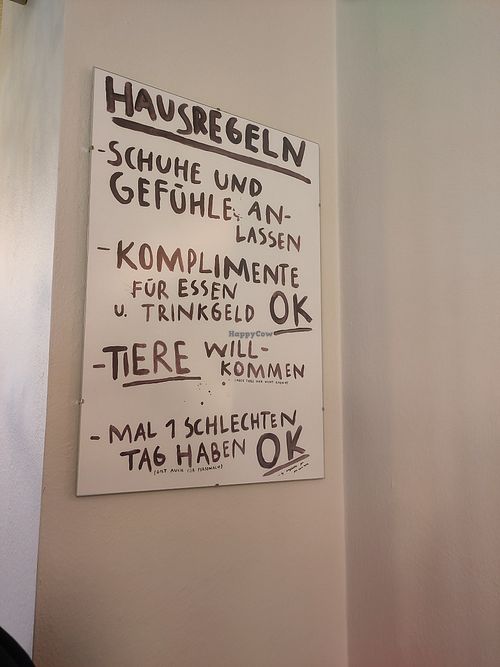 HAUSREGELN
-SCHUHE UND
GEFÜHLE AN-
LASSEN
-KOMPLIMENTE
FÜR ESSEN
U. TRINKGELD OK
HappyCow
-TIERE WILL-
KOMMEN
-MAL 1 SCHLECHTEN
TAG HABEN OK
(GILT AUCH FÜR PERSONAL)